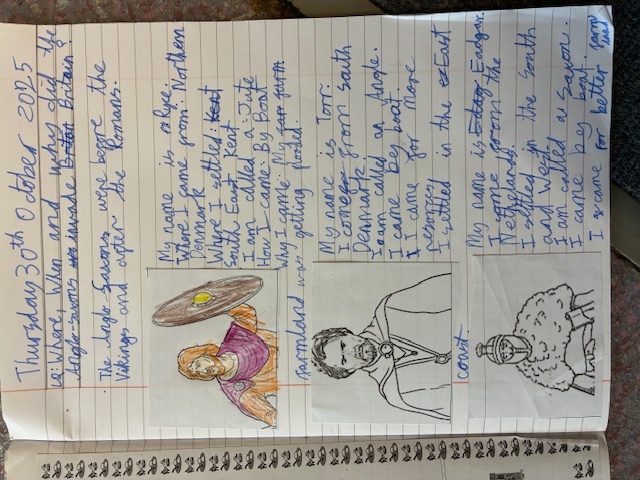 Thursday 30th October 2025
LO: Where, When and why did the
Anglo-Saxons invade Britain?
The Anglo-Saxons were before the
Vikings and after the Romans.
My name is Rype.
Where I came from: Northern
Denmark
Where I settled: Kent
South East Kent
I am called a Jute
How I came: By Boat
Why I came: My farm
farmland was getting flooded.
My name is Torr.
I come from South
Denmark
I am called an Angle.
I came by boat.
I came for more
I settled in the East
coast.
My name is Eadgar.
I come from the
Netherlands.
I settled in the South
and West.
I am called a Saxon.
I came by boat.
I came for better farm